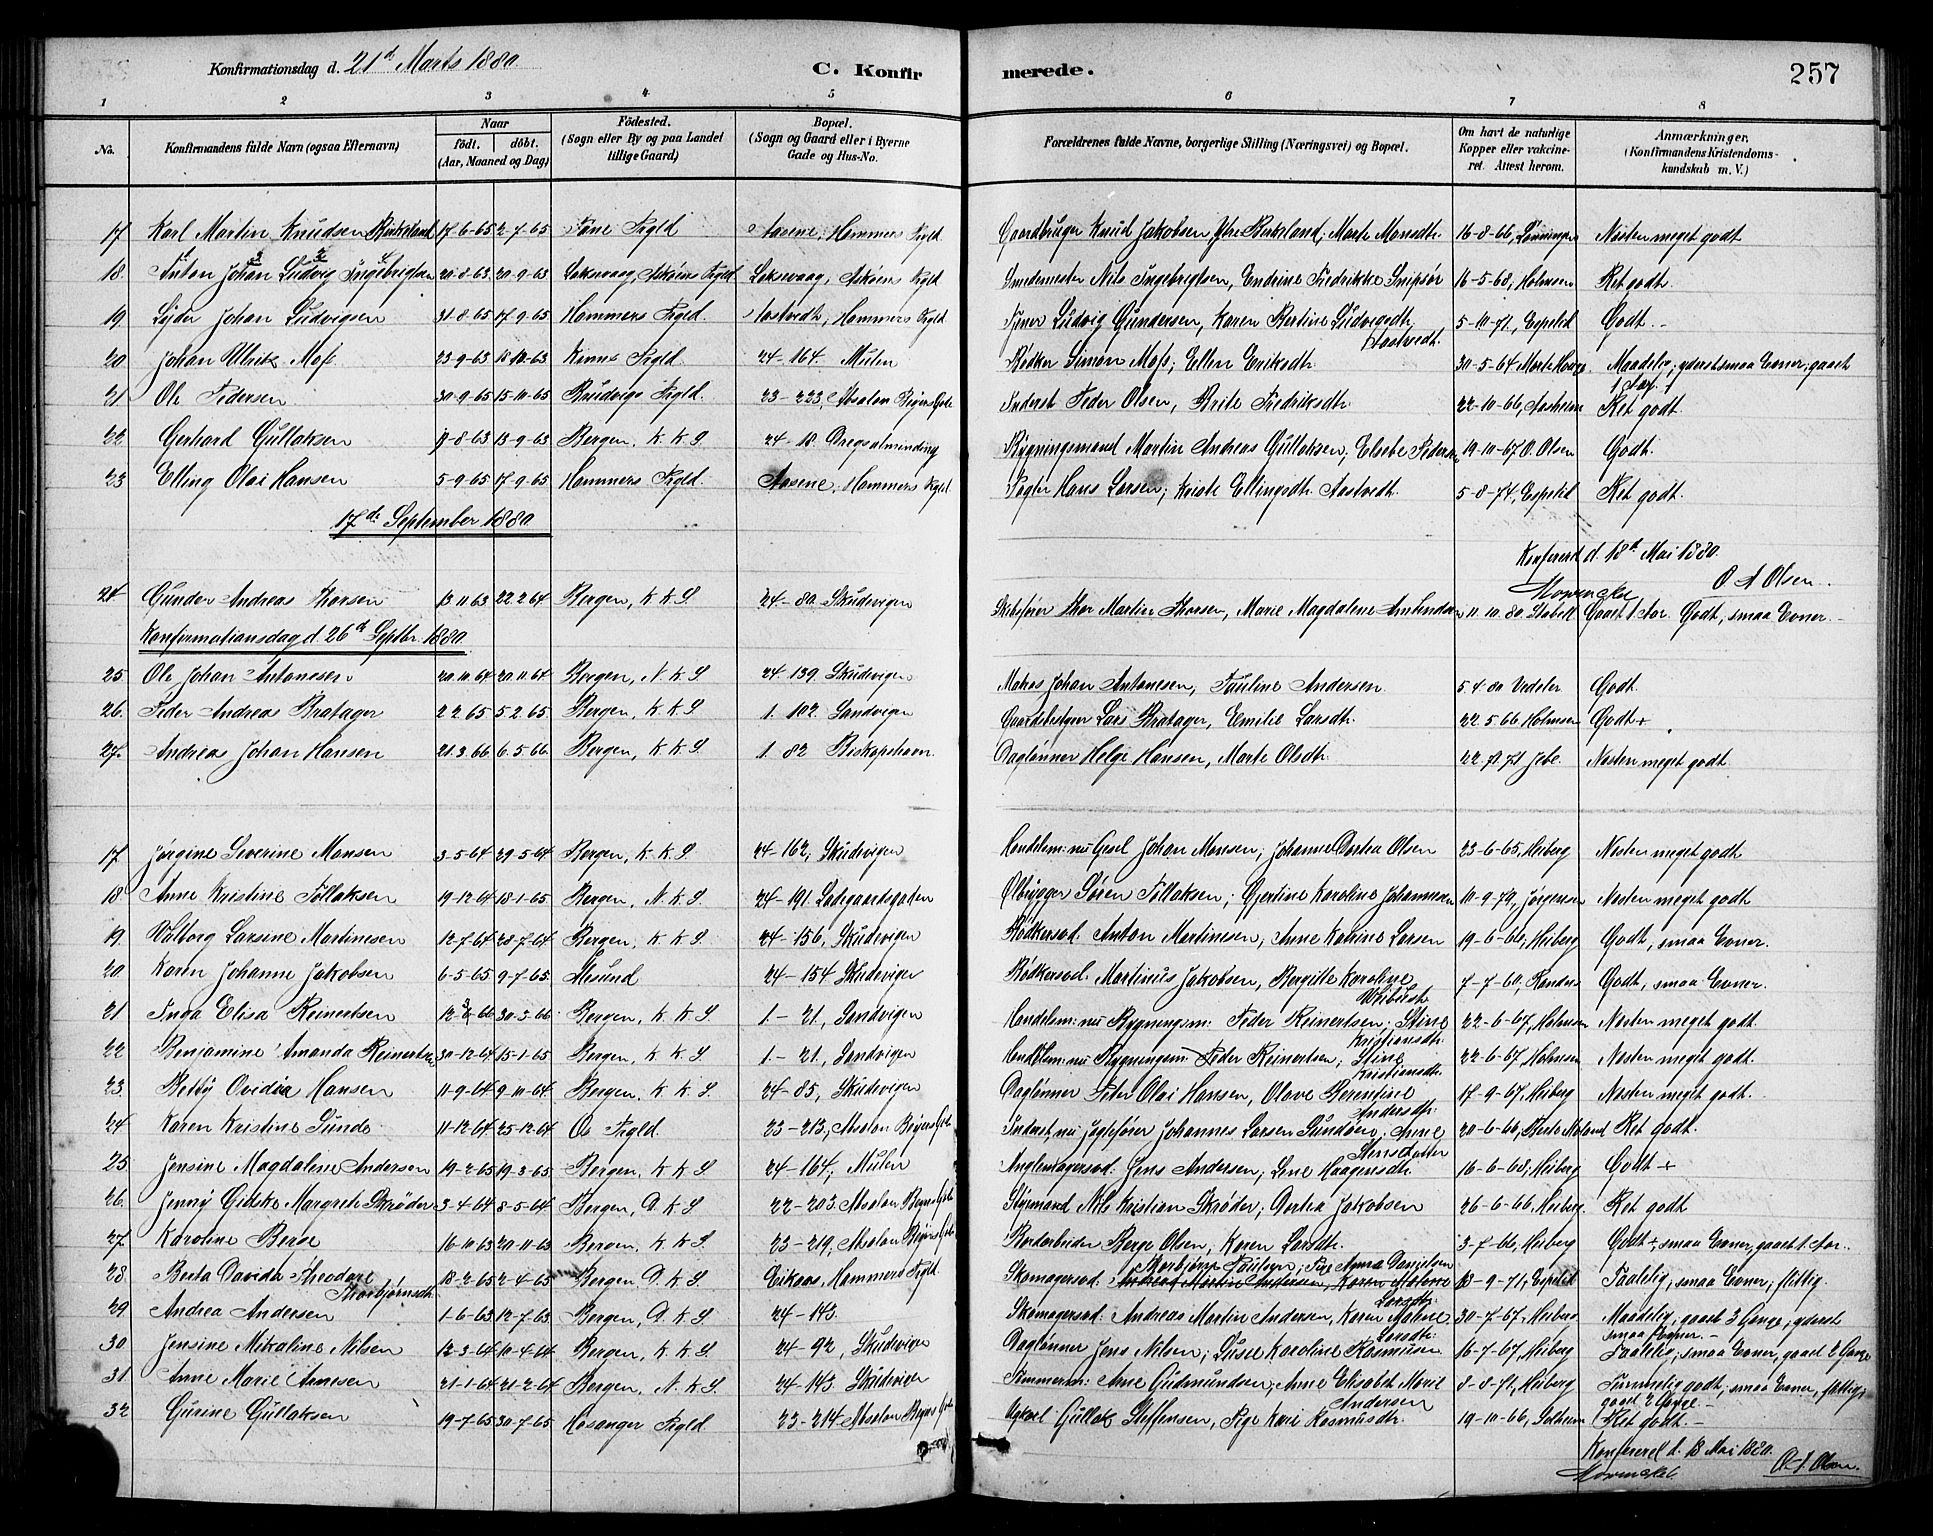 Konfirmationsdag d. 21d Marts 1880 C. Konfirmerede. 257
1 2 3 4 5 6 7 8
No. Konfirmandens fulde Navn (ogsaa Efternavn) Naar födt. döbt. (Aar, Maaned og Dag) Födested. (Sogn eller By og paa Landet tillige Gaard) Bopæl. (Sogn og Gaard eller i Byerne Gade og Hus-No. Forældrenes fulde Navne, borgerlige Stilling (Næringsvei) og Bopæl. Om havt de naturlige Kopper eller vakcineret. Attest herom. Anmærkninger. (Konfirmandens Kristendomskundskab m. V.)
17 Karl Martin Knudsen Birkeland 17-6-65 2-7-65 Fane Prgld Aasene, Hammers Prgld. Gaardbruger Knud Jakobsen Ytre Birkeland; Marte Monsdtr. 16-8-66, Lønningen Næsten meget godt
18. Anton Johan Ludvig Ingebrigtsen 20-8-63 20-9-63 Laksevaag, Askøens Prgld Laksevaag, Askøens Prgld Smedmester Nils Ingebrigtsen, Endrine Fredrikke Snipsør 16-5-68, Holmsen Ret godt.
19 Lyder Johan Ludvigsen 31-8-65 17-9-65 Hammers Prgld. Aastvedt, Hammers Prgld Tjener Ludvig Gundersen, Karen Bertine Ludvigsdtr. Aastvedt. 5-10-71, Espelid Godt.
20 Johan Ulrik Moss 23-9-63 18-10-63 Kinns Prgld 24-164. Mulen Rødker Simon Moss; Ellen Eriksdtr. 30-5-64, Maadelig, yderst smaa Evner, gaaet 1 Aar.
21 Ole Pedersen 30-9-65 15-10-65 Bruvigs Prgld. 23-223, Absalon Beyers Gde Inderst Peder Olsen, Brite Fredriksdtr. 22-10-66, Aasheim Ret godt.
22 Gerhard Gullaksen 17-8-63 13-9-63 Bergen, K. K. S. 24-18. Dregsalmending Bygningsmand Martin Andreas Gullaksen, Elsebe Pedersen 19-10-67 O. Olsen Godt.
23 Elling Olai Hansen 5-9-65 17-9-65 Hammers Prgld. Aasene, Hammers Prgld Hans Larsen; Ellingsdtr. Aastvedt. 5-8-74, Espelid Ret godt.
17de September 1880
Konfereret d. 18d Mai 1880.
Mowinckel O A Olsen.
24 Gunder Andreas Thorsen 13 11 63 22 2 64 Bergen, K. K. S. 24-80 Skudevigen Skibsfører Thor Martin Thorsen, Marie Magdalene Amundsen 11. 10. 80. Stabell Gaaet 1 Aar. Godt, smaa Evner.
Konfirmationsdag d. 26d Septbr. 1880
25 Ole Johan Antonesen 20 10 64 20 11 64 Bergen, N. K. S 24-139 Skudevigen Matros Johan Antonesen, Pauline Andersen. 5. 4. 80 Vedeler Godt.
26. Peder Andreas Bratager 2 2 65 5. 2 65. Bergen, K. K. S 1. 102. Sandvigen Lars Bratager, Emilie Larsdtr. 22. 5. 66. Holmsen Godt +
27. Andreas Johan Hansen 21. 3. 66 6. 5. 66 Bergen, K K S. 1. 82 Biskopshavn. Daglønner Helge Hansen, Marte Olsdtr. 22. 71. 71 Jebe. Næsten meget godt.
17 Jørgine Severine Monsen 3-5-64 29-5-64 Bergen, K. K. S. 24-162, Skudevigen Handelsm: nu Gesel Johan Monsen, Johanne Dortea Olsen 23-6-65, Heiberg Næsten meget godt
18 Anne Kristine Tollaksen 19-12-64 18-1-65 Bergen, N. K. S. 24-191. Ladegaardsgaden Ølbrygger Søren Tollaksen; Gjertine Karoline Johannesen 10-9-79, Jørgensen Næsten meget godt
19 Valborg Larsine Martinesen 12-7-64 28-7-64 Bergen, K. K. S. 24-156, Skudevigen Bødkersvd. Anton Martinesen, Anne Katrine Larsen 19-6-66, Heiberg Godt, smaa Evner.
20 Karen Johanne Jakobsen 6-5-65 9-7-65. Alesund 24-154 Skudevigen Bødkersvd. Martinus Jakobsen, Bergitte Karoline 7-7-60, Godt, smaa Evner.
21 Inga Elisa Reinertsen 12-2-66 30-3-66. Bergen, K K S. 1-21, Sandvigen Handelsm: nu Bygningsm: Peder Reinertsen, Stine Kristiansdtr. 22-6-67, Holmsen Næsten meget godt.
22 Benjamine Amanda Reinertsen 30-12-64 15-1-65 Bergen, K. K. S 1-21, Sandvigen Handelsm: nu Bygningsm: Peder Reinertsen, Stine Kristiansdtr. 22-6-67, Holmsen Næsten meget godt.
23. Betsy Ovidia Hansen 11-9-64 9-10-64 Bergen, K. K. S 24-85, Skudevigen Dagløner Peter Olai Hansen, Olave Berentine Andersdtr. 17-9-67, Heiberg Næsten meget godt.
24 Karen Kristine Sunde 11-12-64 25-12-64 Os Prgld 23-213, Absalon Beyers Gde Inderst, nu Jagtefører Johannes Larsen Sundøen; Anne Stensdatter 20-6-66, Ret godt.
25 Jensine Magdaline Andersen 19-2-65 19-3-65 Bergen, K. K. S 24-164, Mulen Anglemagersvd. Jens Andersen; Lene Haagensdtr. 16-6-68, Heiberg Godt +
26. Jenny Gidske Margrete Skrøder 3-4-64 8-5-64 Bergen, D. K. S 22-203. Absalon Beyers Gde Styrmand Nils Kristian Skrøder; Dortea Jakobsen 26-6-66, Heiberg. Ret godt
27. Karoline Berge 16-10-63 20-11-63 Bergen, K. K. S 23-219, Absalon Beyers Gde Bordarbeider Berge Olsen, Karen Larsdtr. 3-7-66, Heiberg Godt +, smaa Evner, gaaet 1 Aar.
28 Berta Davida Theodora Thorbjørnsdtr. 18-2-65 2-4-65 Bergen D. K. S. Eikaas, Hammers Prgld Skomagersvd: Thorbjørn Paulsen, Pige Anna Danielsen 13-9-71, Espelid Taalelig, smaa Evner, flittig.
29 Andrea Andersen 1-6-63 12-7-63 Bergen, D. K. S 24-143. Skomagersvd: Andreas Martin Andersen, Karen Malene Larsdtr. 30-7-67, Heiberg Maadelig, gaaet 3 Gange, yderst smaa Evner.
30 Jensine Mikaline Nilsen 12-3-64 10-4-64 Bergen, K K S. 24-92, Skudevigen Dagløner Jens Nilsen, Lusie Karoline Rasmusen 16-7-67, Heiberg Taalelig, smaa Evner, gaaet 2 Gange
31 Anne Marie Arnesen 21-1-64 21-2-64 Bergen, N. K. S 24-143. Skudevigen Tømmerm: Arne Gudmundsen; Anne Elisabet Marie Andersen 8-8-71, Heiberg Temmelig godt, smaa Evner, flittig, gaaet 2 Gange
32 Gurine Gullaksen 19-7-65 30-7-65 Hosanger Prgld 23-214 Absalon Beyers Gde Gullak Steffensen, Pige Kari Rasmusdtr. 19-10-66, Solheim Ret godt.
Konfereret d. 18 Mai 1880.
Mowinckel O. A. Olsen.